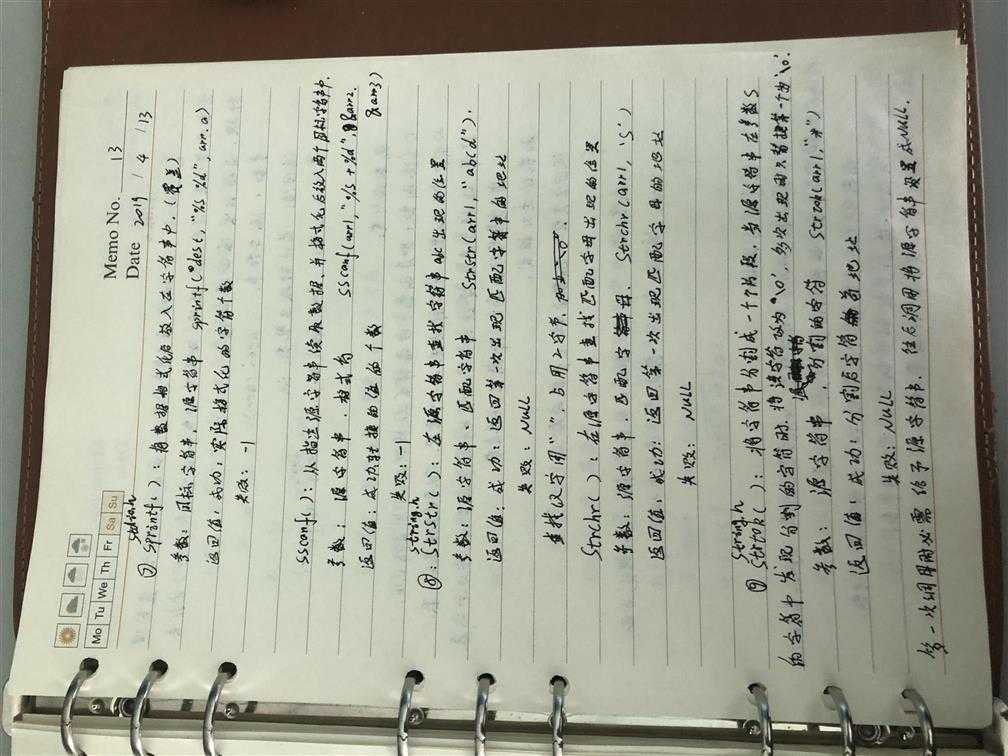 Memo No. 13
Mo Tu We Th Fr Sa Su
Date 2019 / 4 / 13
stdio.h
⑦ sprintf(): 将数据格式化后放入在字符串中.(覆盖)
参数: 目标字符串 源字符串 sprintf(*dest, "%s %d", arr. a)
返回值: 成功: 实际格式化的字符个数
失败: -1
sscanf(): 从指定源字符串读取数据, 并格式化后放入两个目标字符串中.
参数: 源字符串. 格式的 sscanf(arr1, "%s + %d", &arr2.
&arr3)
返回值: 成功转换的值的个数
失败: -1
string.h
⑧: StrStr(): 在源字符串查找字符串abc出现的位置
参数: 源字符串、匹配字符串 StrStr(arr1, "abcd").
返回值: 成功: 返回第一次出现匹配字符串的地址
失败: NULL
查找汉字用" ". 占用2字节.
Strchr(): 在源字符串查找匹配字母出现的位置
参数: 源字符串. 匹配字母. Strchr(arr1, 'S')
返回值: 成功: 返回第一次出现匹配字母的地址
失败: NULL
String.h
⑨ Strtok(): 将字符串分割成一个个片段. 当源字符串在参数S
的字符中发现分割的字符时. 将该字符改为'\0', 多次出现则只替换第一个为'\0'.
参数: 源字符串, 分割的字符 Strtok(arr1, "#")
返回值: 成功: 分割后字符的地址
失败: NULL
第一次调用时必需给予源字符串. 往后调用将源字符串设置成NULL.